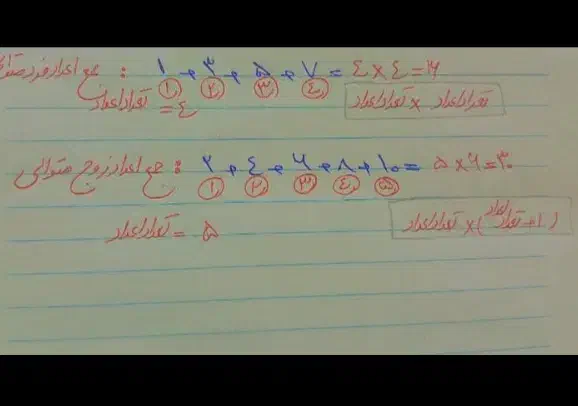 جمع اعداد فرد متوالی : ۱ + ۳ + ۵ + ۷ = ٤ × ٤ = ۱۶
۱ ۲ ۳ ٤
تعداد اعداد = ٤
تعداد اعداد × تعداد اعداد
جمع اعداد زوج متوالی : ۲ + ٤ + ۶ + ۸ + ۱۰ = ۵ × ۶ = ۳۰
۱ ۲ ۳ ٤ ۵
تعداد اعداد = ۵
تعداد اعداد × (تعداد اعداد + ۱)